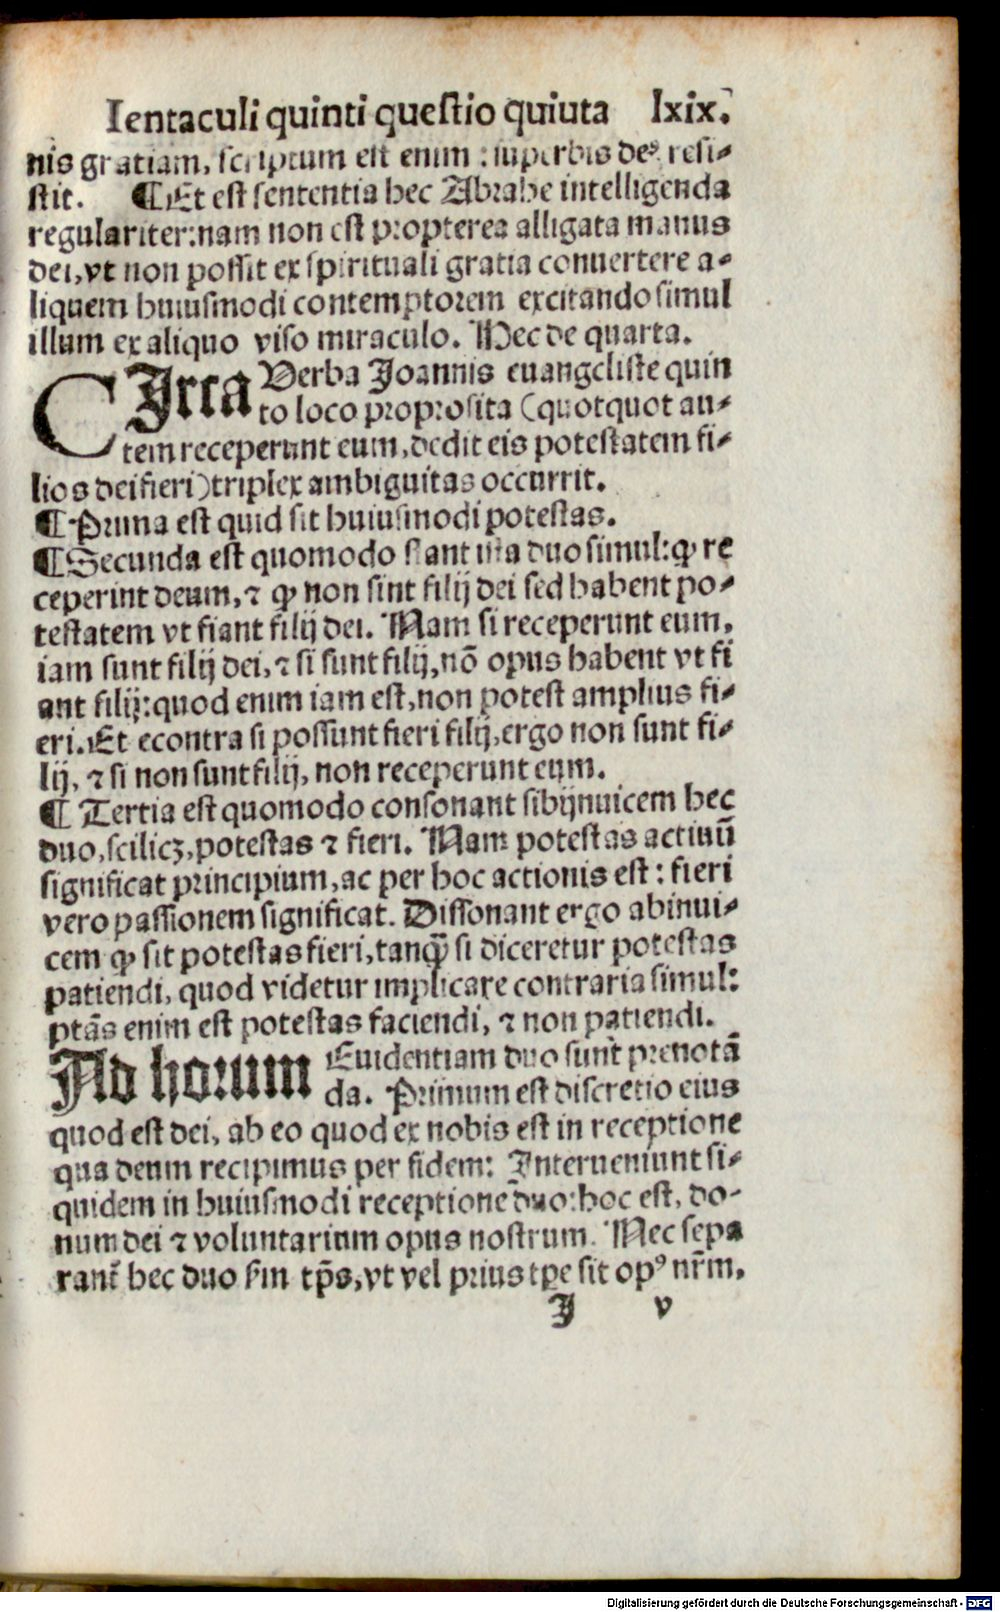 Ientaculi quinti questio quiuta lxix.
nis gratiam, scriptum est enim : superbis deꝰ resi⸗
stit. ¶ Et est sententia hec Abrahe intelligenda
regulariter: nam non est propterea alligata manus
dei, vt non possit ex spirituali gratia conuertere a⸗
liquem huiusmodi contemptorem excitando simul
illum ex aliquo viso miraculo. Hec de quarta.
CIrca Verba Joannis euangeliste quin
to loco proprosita (quotquot au⸗
tem receperunt eum, dedit eis potestatem fi⸗
lios dei fieri) triplex ambiguitas occurrit.
¶ Prima est quid sit huiusmodi potestas.
¶ Secunda est quomodo stant ista duo simul: ꝙ re
ceperint deum, ⁊ ꝙ non sint filij dei sed habent po⸗
testatem vt fiant filij dei. Nam si receperunt eum,
iam sunt filij dei, ⁊ si sunt filij, nō opus habent vt fi
ant filij: quod enim iam est, non potest amplius fi⸗
eri. Et econtra si possunt fieri filij, ergo non sunt fi⸗
lij, ⁊ si non sunt filij, non receperunt eum.
¶ Tertia est quomodo consonant sibijnuicem hec
duo, scilicꝫ, potestas ⁊ fieri. Nam potestas actiuū
significat principium, ac per hoc actionis est : fieri
vero passionem significat. Dissonant ergo abinui⸗
cem ꝙ sit potestas fieri, tanꝙ̄ si diceretur potestas
patiendi, quod videtur implicare contraria simul:
ptās enim est potestas faciendi, ⁊ non patiendi.
Ad horum Euidentiam duo sunt prenotā
da. Primum est discretio eius
quod est dei, ab eo quod ex nobis est in receptione
qua deum recipimus per fidem: Interueniunt si⸗
quidem in huiusmodi receptione duo: hoc est, do⸗
num dei ⁊ voluntarium opus nostrum. Nec sepa
rant᷑ hec duo s̄m tp̄s, vt vel prius tp̄e sit opꝰ nr̄m,
I v
Digitalisierung gefördert durch die Deutsche Forschungsgemeinschaft - DFG